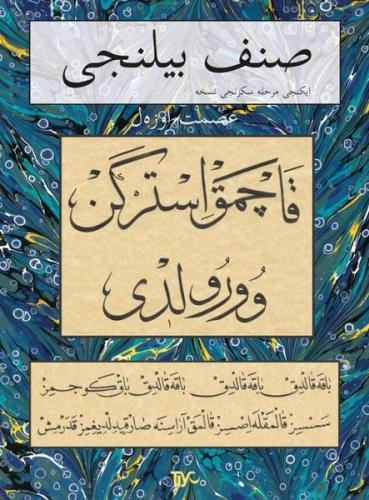 صنف بيلنجى
ايكنجى مرحله سكزنجى نسخه
عصمت اوزەل
قاچمق ايستركن
وورولدى
باقه قالدق باقه قالدق باقه قالدق باق كوجمز
سسسز قالمقله اصسز قالمق آراسنه صارقيديلديغمز قدرمش
TİYO